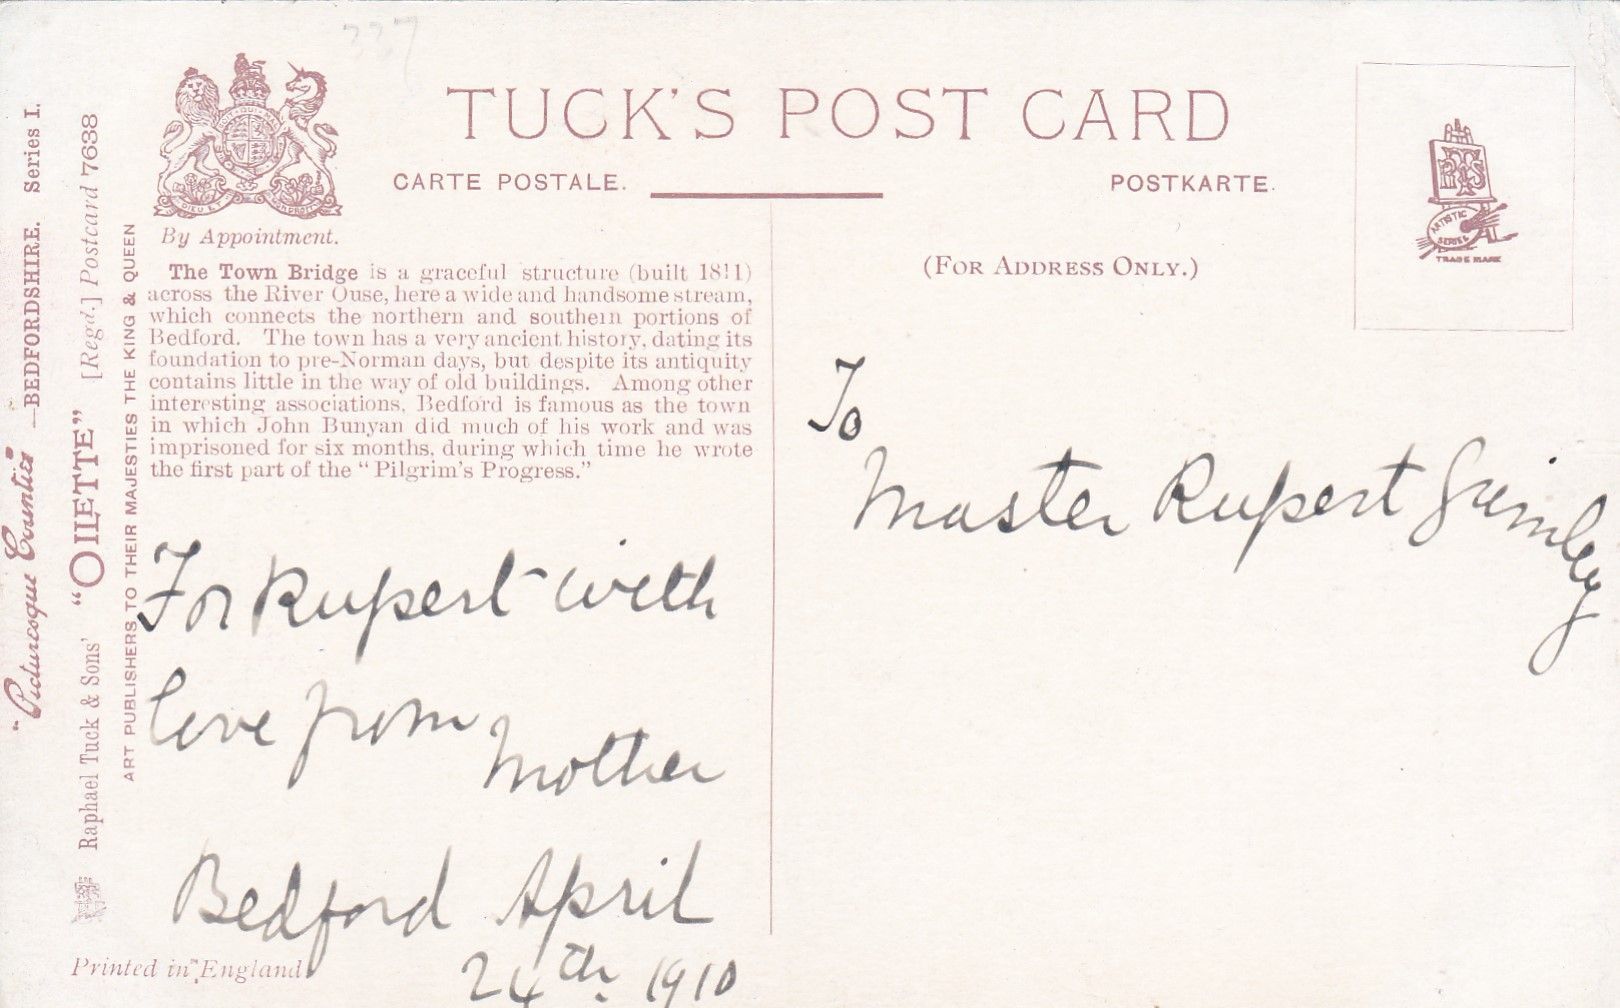 337
TUCK'S POST CARD
CARTE POSTALE.
POSTKARTE.
By Appointment.
(FOR ADDRESS ONLY.)
ARTISTIC
SERIES
TRADE MARK
The Town Bridge is a graceful structure (built 1811)
across the River Ouse, here a wide and handsome stream,
which connects the northern and southern portions of
Bedford. The town has a very ancient history, dating its
foundation to pre-Norman days, but despite its antiquity
contains little in the way of old buildings. Among other
interesting associations, Bedford is famous as the town
in which John Bunyan did much of his work and was
imprisoned for six months, during which time he wrote
the first part of the "Pilgrim's Progress."
"Picturesque Counties" —BEDFORDSHIRE. Series I.
Raphael Tuck & Sons' "OILETTE" [Regd.] Postcard 7638
ART PUBLISHERS TO THEIR MAJESTIES THE KING & QUEEN
For Rupert with
love from Mother
Bedford April
24th. 1910
Printed in England
To
Master Rupert Grimley